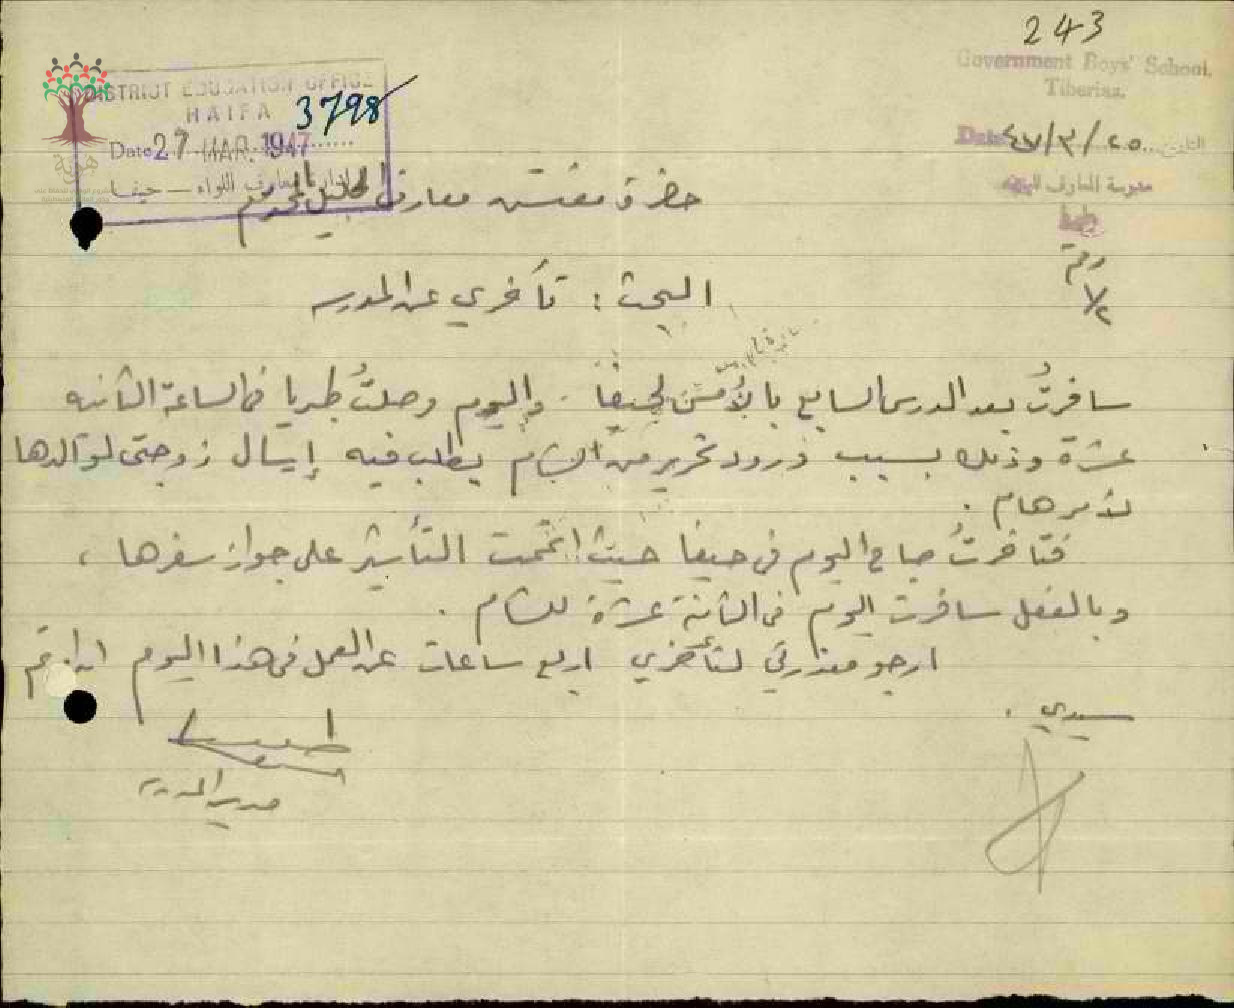 243
Government Boys' School,
Tiberias.
DISTRICT EDUCATION OFFICE
HAIFA
3798
Date 27 MAR. 1947
إدارة معارف اللواء — حيفا
هوية
Date ٤٧/٣/٢٥ التاريخ
مدرسة المعارف
رقم
١/٢
حضرة مفتش معارف الجليل المحترم
البحث : تأخري عن المدرسه
سافرتُ بعد الدرس السابع بالأمس لحيفا. واليوم وصلتُ طبريا في الساعة الثانيه
عشرة وذلك بسبب ورود تحرير من الشام يطلب فيه إرسال زوجتي لوالدها
لأمر هام .
فتأخرتُ صباح اليوم في حيفا حيث اتممت التأشير على جواز سفرها ،
وبالفعل سافرت اليوم في الثانية عشرة للشام .
ارجو معذرتي لتأخري اربع ساعات عن العمل في هذا اليوم
سيدي .
مدير المدرسة